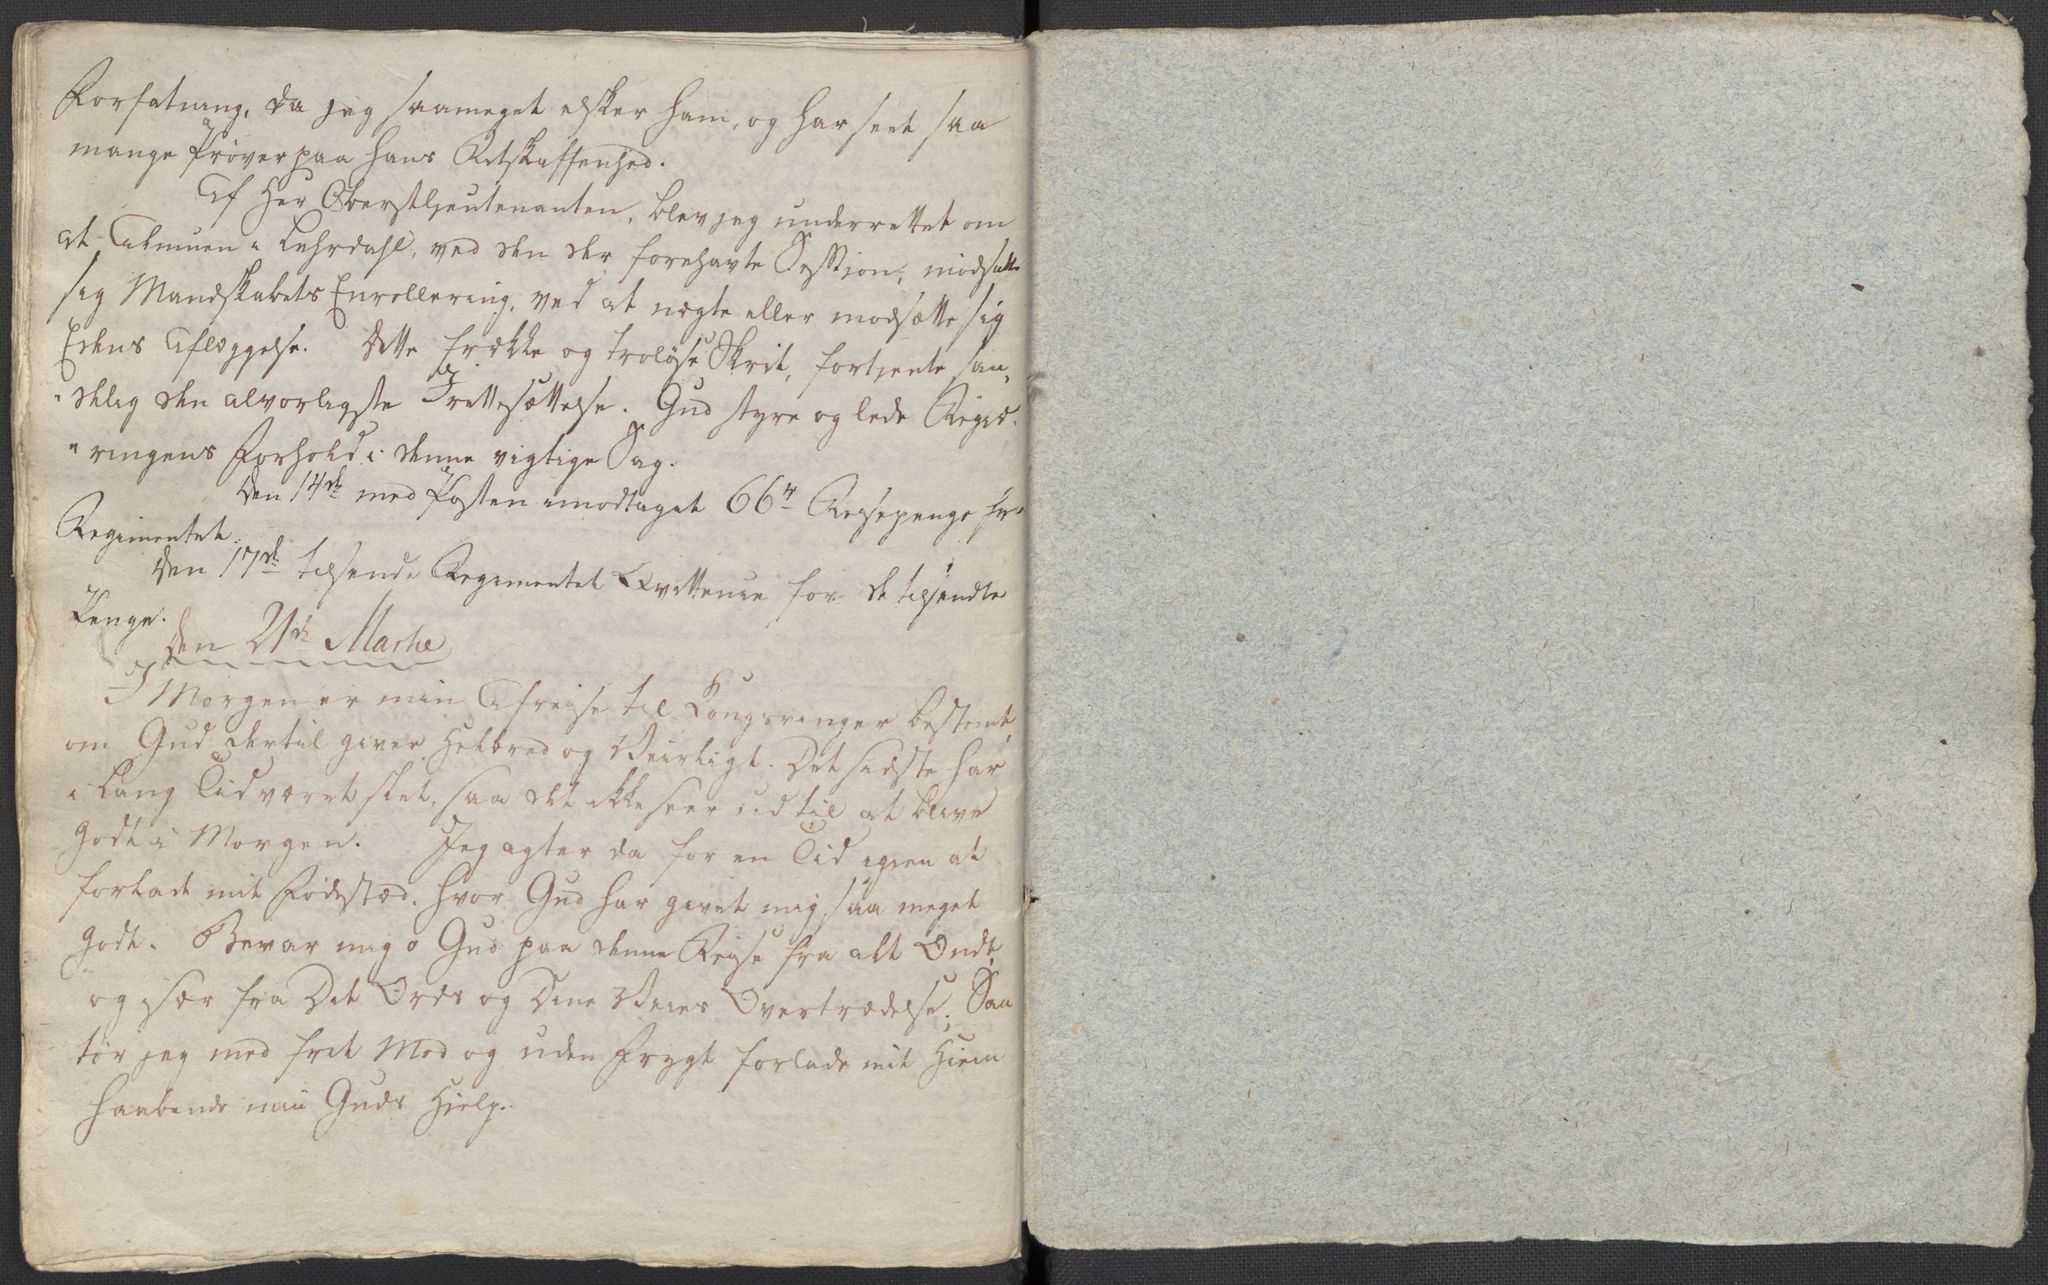 Forfatning, da jeg saameget elsker ham, og har seet saa
mange Prøver paa hans Retskaffenhed.
Af Her Oberstljeutenanten, blev jeg underrettet om
at Almuen i Lehrdahl, ved den der forehavte Session, modsatte
sig Mandskabets Enrollering, ved at nægte eller modsætte sig
Edens Aflæggelse. Dette frække og troløse Skrit, fortjente san„
„delig den alvorligste Irettesættelse. Gud styre og lede Regie„
„ringens Forhold i denne vigtige Sag.
Den 14de med Posten imodtaget 66 Reisepenge fra
Regimentet.
Den 17de tilsendt Regimentet Qvittering for de tilsendte
Penge.
Den 21de Martie
I Morgen er min Afreise til Kongsvinger bestemt,
om Gud dertil giver Helbred og Veirligt. Det sidste har
i lang Tid været slet, saa det ikke seer ud til at blive
godt i Morgen. Jeg agter da for en Tid igien at
forlade mit Fødested, hvor Gud har givet mig saa meget
godt. Bevar mig o Gud paa denne Reise fra alt Ondt,
og især fra Dit Ords og Dine Veies Overtrædelse. Saa
tør jeg med frit Mod og uden Frygt forlade mit Hiem
haabende min Guds Hielp.